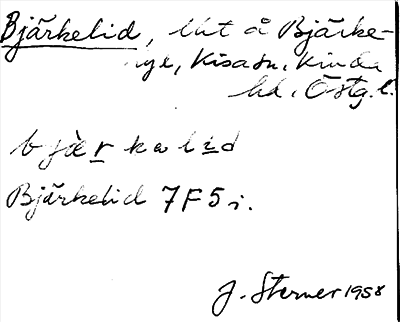 Bjärkelid, lht å Bjärke-
hyl, Kisa sn. Kinda
hd. Östg. l.
bjæ̀rkalid
Bjärkelid 7F5i.
J. Sterner 1958